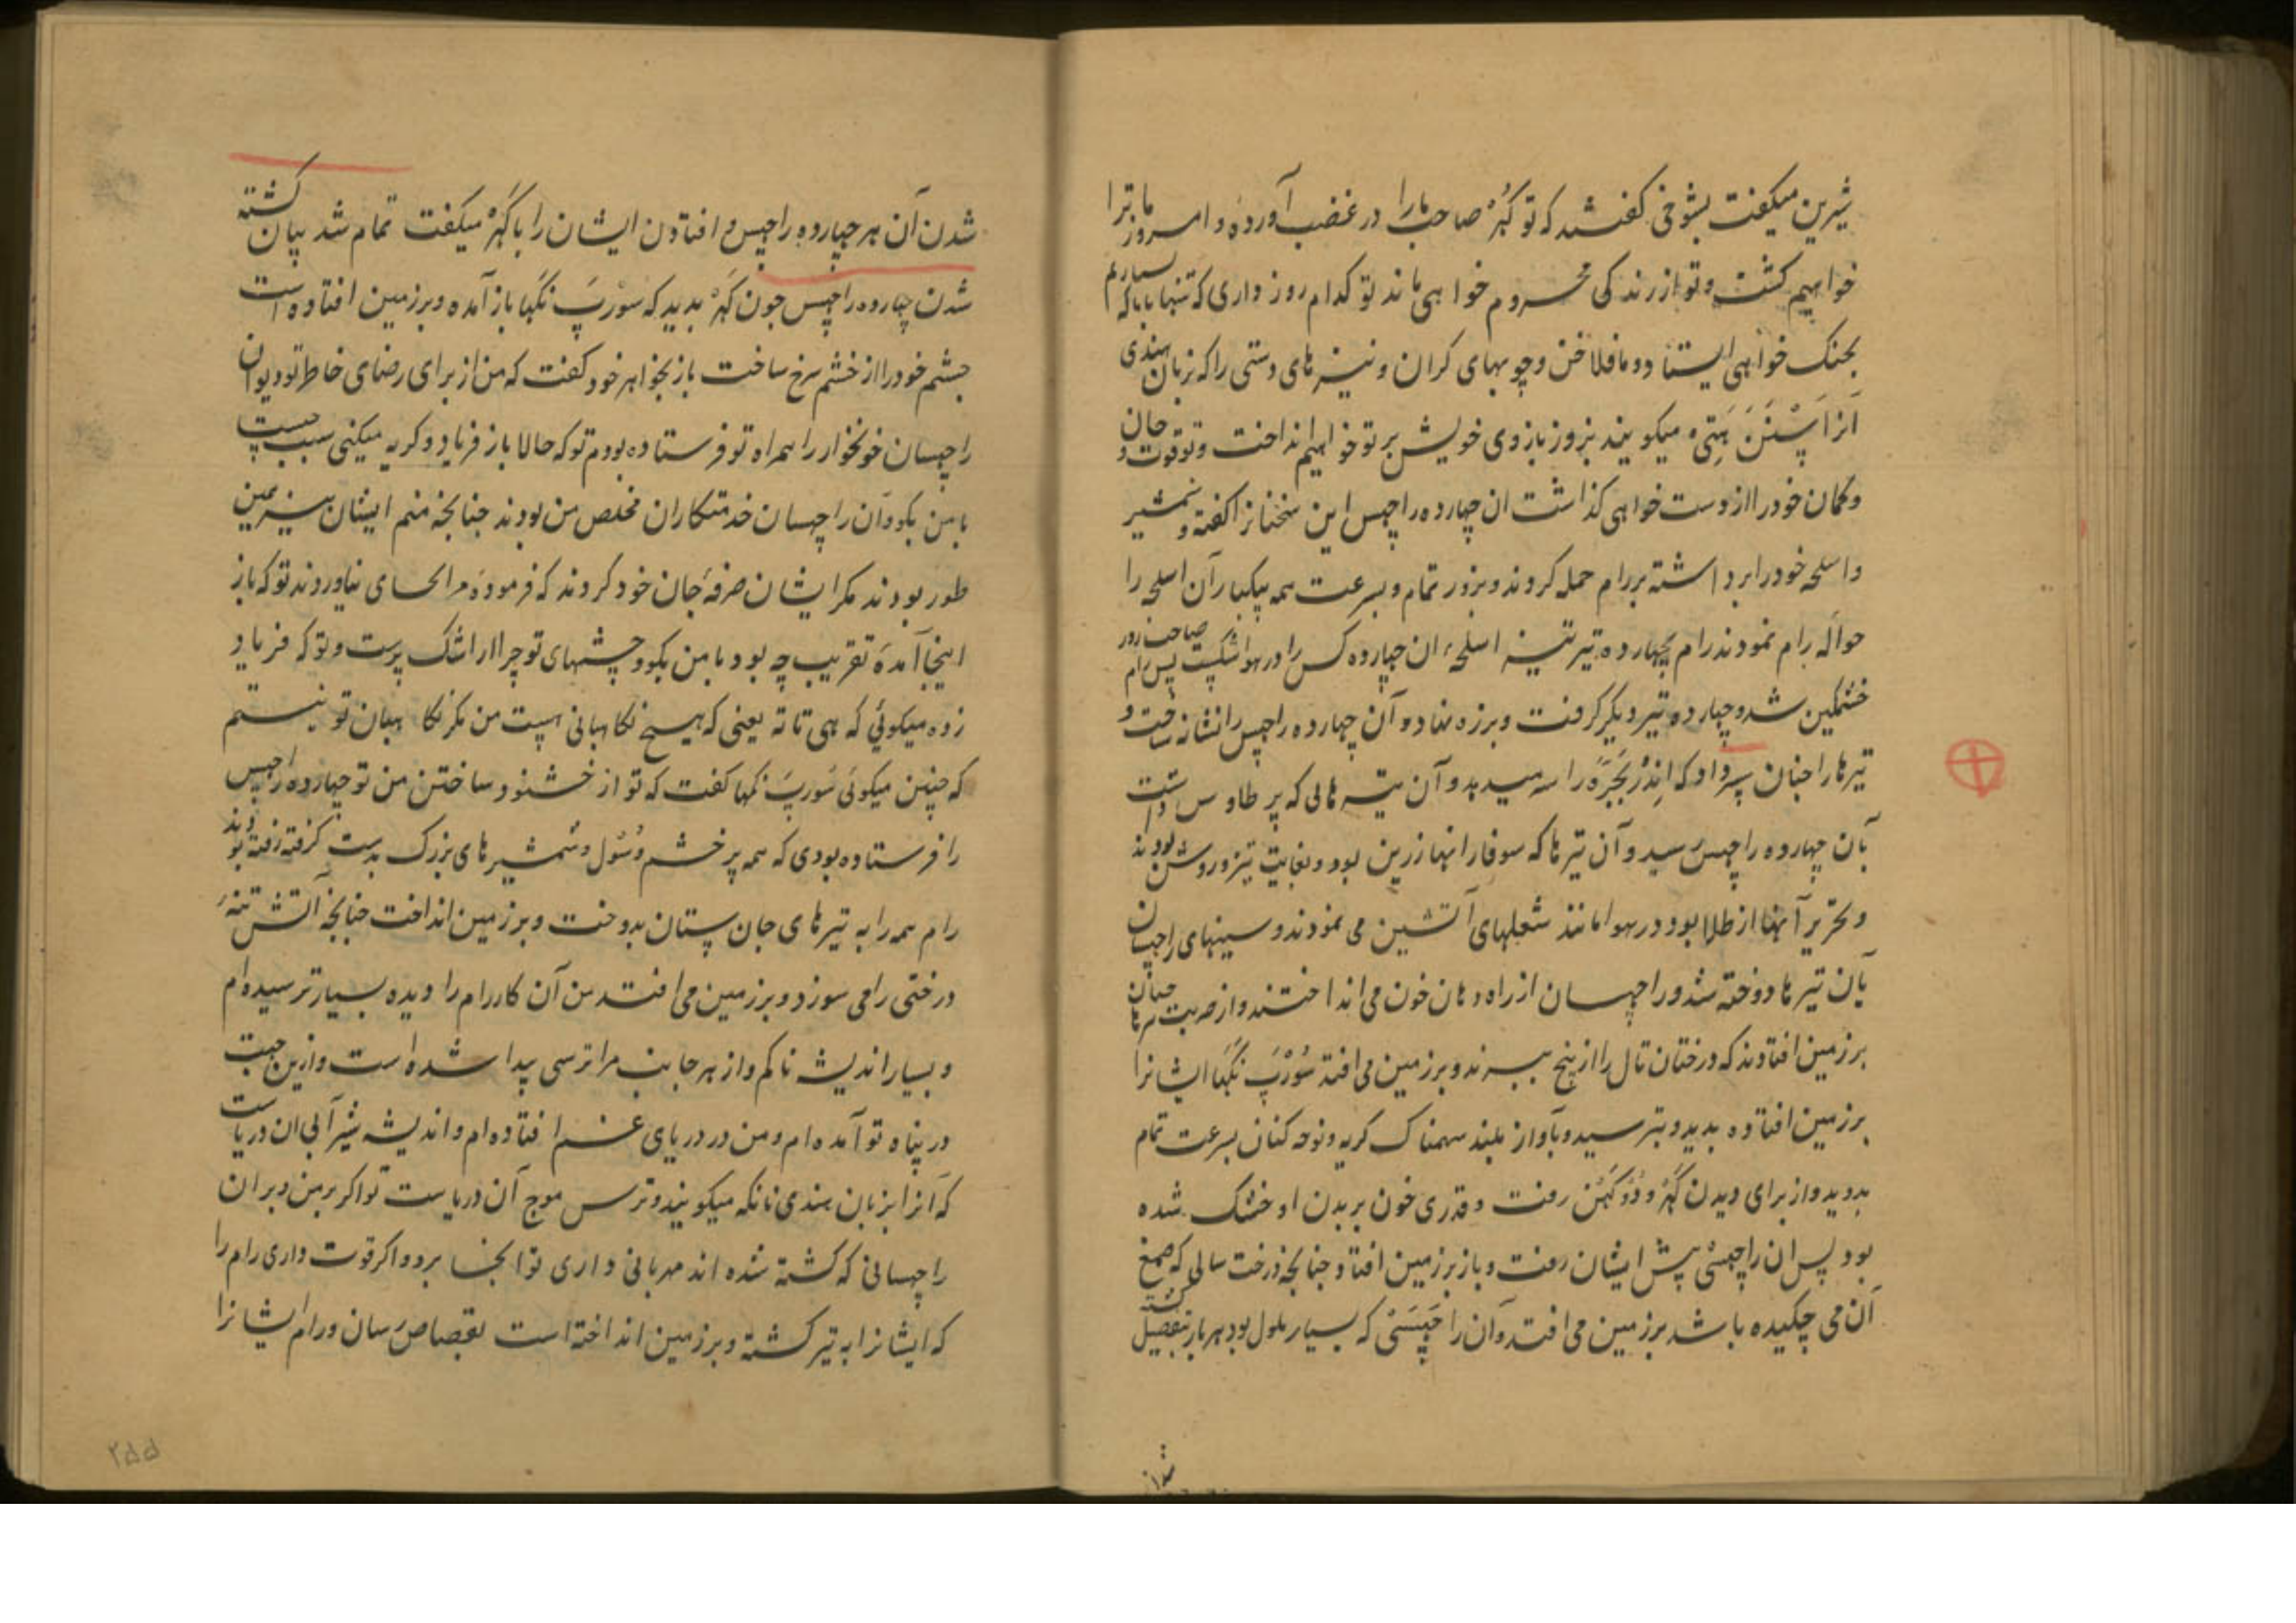 شیرین میکفت بشوخی کفتند که تو کهر صاحب ما را در غضب آورده و امروز ما ترا
خواهیم کشت و تو از زندکی محروم خواهی ماند تو کدام روز داری که تنها با ما که بسیاریم
بجنک خواهی ایستاد و ما فلاخن و چوبهای کران و نیزه های دستی را که بزبان هندی
آنرا میکویند بزور بازوی خویش بر تو خواهیم انداخت و تو قوت و جان
و کمان خود را از دست خواهی کذاشت ان چهارده راچهس این سخنانرا کفته و شمشیر
و اسلحه خود را برداشته بر رام حمله کردند و بزور تمام و بسرعت همه بیکبار آن اسلحه را
حواله رام نمودند رام بچهارده تیر تیز اسلحه ان چهارده کس را در هوا شکست پس رام صاحب زور
خشمکین شد و چهارده تیر دیکر کرفت و بر زه نهاد و آن چهارده راچهس را نشانه ساخت و
تیرها را چنان سرداد که اندر بجر را سر میدهد و آن تیرهائی که پر طاوس داشت
بآن چهارده راچهس رسید و آن تیرها که سوفار انها زرین بود و بغایت تیز و روشن بودند
و تحریر آنها از طلا بود در هوا مانند شعلهای آتشین می نمودند و سینهای راچهسان
بآن تیرها دوخته شد و راچهسان از راه دهان خون می انداختند و از ضربت تیرها چنان
بر زمین افتادند که درختان تال را از بیخ ببرند و بر زمین می افتد سورپ نکها ایشانرا
بر زمین افتاده بدید و بترسید و بآواز بلند سهمناک کریه و نوحه کنان بسرعت تمام
بدوید و از برای دیدن کهر و دوکهن رفت و قدری خون بر بدن او خشک شده
بود پس ان راچهسی پیش ایشان رفت و باز بر زمین افتاد چنانچه درخت سالی که صمغ
آن می چکیده باشد بر زمین می افتد و آن راچهسنی که بسیار ملول بود هر بار بتفصیل کشته
شدن آن هر چهارده راچهس و افتادن ایشان را با کهر میکفت تمام شد بیان کشته
شدن چهارده راچهس چون کهر بدید که سورپ نکها باز آمده و بر زمین افتاده است
چشم خود را از خشم سرخ ساخت باز بخواهر خود کفت که من از برای رضای خاطر تو دیوان
راچهسان خونخوار را همراه تو فرستاده بودم تو که حالا باز فریاد و کریه میکنی سبب چیست
با من بکو و آن راچهسان خدمتکاران مخلص من بودند چنانچه منم ایشان نیز همین
طور بودند مکر ایشان صرفه جان خود کردند که فرموده مرا بجای نیاوردند تو که باز
اینجا آمده تقریب چه بود با من بکو و چشمهای تو چرا از اشک پرست و تو که فریاد
زده میکوئی که هی ناته یعنی که هیچ نکاهبانی هست من مکر نکاهبان تو نیستم
که چنین میکوئی سورپ نکها کفت که تو از خشنود ساختن من تو چهارده راچهس
را فرستاده بودی که همه پر خشم و سول و شمشیرهای بزرک بدست کرفته رفته بودند
رام همه را به تیرهای جان ستان بدوخت و بر زمین انداخت چنانچه آتش تنه
درختی را می سوزد و بر زمین می افتد من آن کار رام را دیده بسیار ترسیده ام
و بسیار اندیشه ناکم و از هر جانب مرا ترسی پیدا شده است و ازین جهت
در پناه تو آمده ام و من در دریای غم افتاده ام و اندیشه شیر آبی ان دریاست
که آنرا بزبان هندی ناکه میکویند و ترس موج آن دریاست تو اکر بر من و بر ان
راچهسانی که کشته شده اند مهربانی داری تو انجا برو و اکر قوت داری رام را
که ایشانرا به تیر کشته و بر زمین انداخته است بقصاص رسان و رام ایشانرا
۲۵۵